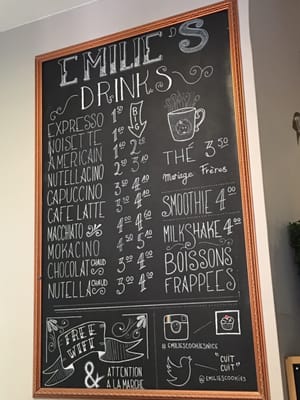 EMILIE'S
DRINKS
BIG
EXPRESSO 1.50
NOISETTE 1.50
AMERICAIN 1.50 2.50
NUTELLACINO 2.50 3.10
CAPUCCINO 3.50 4.10
CAFE LATTE 3.50 4.10
MACCHIATO 4.00 4.90
MOKACINO 4.50 5.40
CHOCOLAT CHAUD 3.00 4.00
NUTELLA CHAUD 3.00 4.00
THÉ 3.50
Mariage Frères
SMOOTHIE 4.00
MILKSHAKE 4.00
BOISSONS
FRAPPEES
FREE
WIFI
& ATTENTION
A LA MARCHE
@EMILIESCOOKIESNICE
"CUIT
CUIT"
@EMILIESCOOKIES